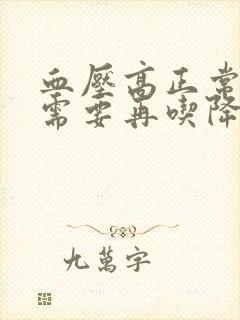 血壓高正常
需要再喫降
九萬字